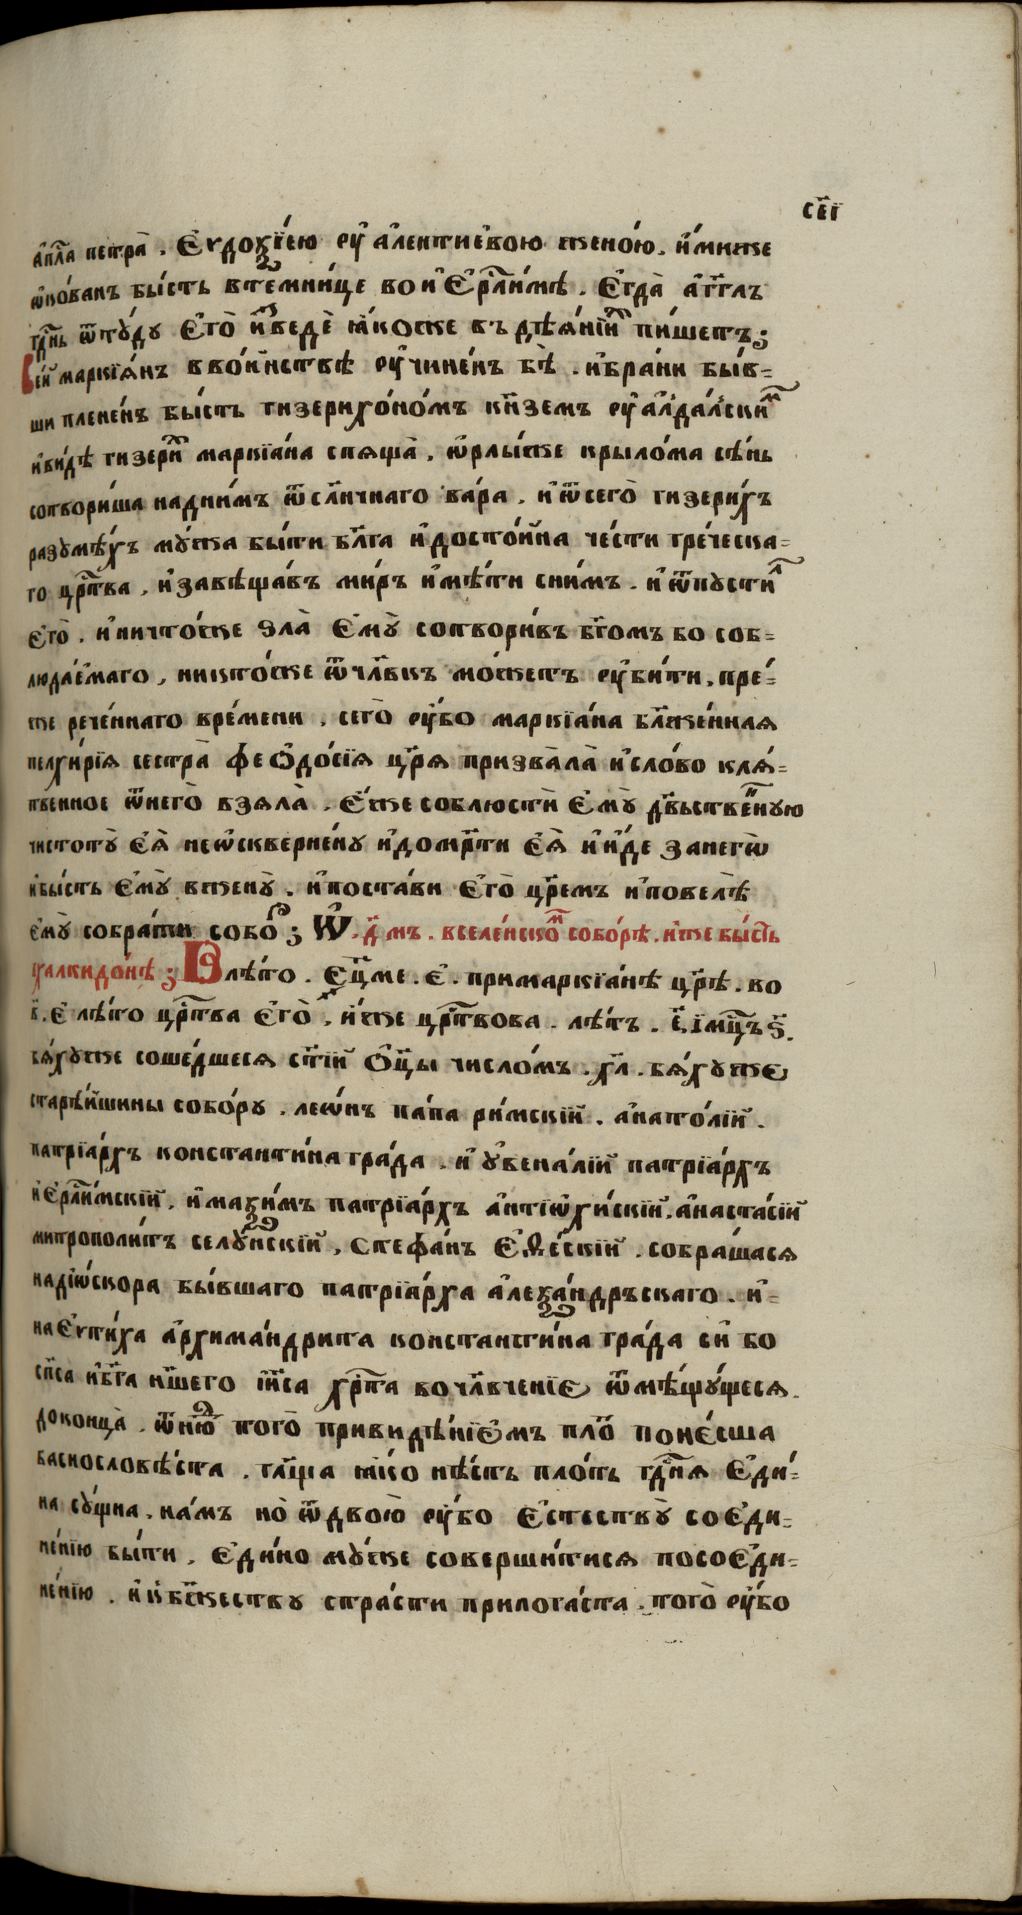 сн҃і
а҆пⷭ҇ла петра̀ . Є҆ѵдоѯі́ею ᲂу҆алентие́вою женою . и҆́миже
ѡ҆ко́ванъ бы́сть втемни́це во и҆Є҆рⷭ҇ли́мѣ . Є҆гда̀ а҆́гг҃лъ
гдⷭ҇нь ѿту́ду Є҆го̀ и҆зведѐ ꙗ҆́коже въ дѣѧ́нїих пи́шетъ ;
Сей маркїѧ́нъ вво́инствѣ ᲂу҆чине́нъ бѣ̀ . и҆бра́ни бы́в=
ши плене́нъ бы́сть гизерихо́номъ кн҃земъ ᲂу҆алда́лским
и҆ви́дѣ гизери́х маркїа́на спѧща̀ , ѡ҆рлы́же крылома сѣ́нь
сотвори́ша надни́мъ ѿсл҃ничнаго ва́ра , и҆ ѿсего̀ гизери́хъ
разумѣ́хъ му́жа бы́ти бл҃га и҆досто́йна че́сти гре́ческа=
го црⷭ҇тва , и҆завѣща́въ ми́ръ и҆мѣ́ти сни́мъ . и҆ ѿпусти́л
Є҆го̀ . и҆ничто́же ѕла̀ Є҆мꙋ̀ сотвори́въ бг҃омъ бо соб=
людаемаго , никто́же ѿчл҃вкъ мо́жетъ ᲂу҆би́ти . пре́=
же рече́ннаго вре́мени , сего̀ ᲂу҆́бо маркїа́на бл҃же́ннаѧ
пелхи́рїѧ сестра̀ феѻдо́сїѧ цр҃ѧ призвала̀ и҆сло́во клѧ́=
твенное ѿнего̀ взѧла̀ . Є҆́же соблюстѝ Є҆мꙋ̀ дв҃ьстве́нную
чистоту̀ Є҆ѧ̀ неѡ҆скверне́ну и҆досмр҃ти Є҆ѧ̀ и҆и҆́де занегѡ̀
и҆бы́сть Є҆мꙋ̀ вжену̀ . и҆поста́ви Є҆го̀ цр҃емъ и҆повелѣ̀
Є҆мꙋ̀ собра́ти собо́р ; Ѡ҆ . д҃мъ . вселе́нском собо́рѣ . и҆́же бы́сть
халкидо́нѣ ; В лѣ́то . Є҆ц҃ме . є҃ . примаркїа́нѣ цр҃ѣ . во
в҃ . е лѣ́то црⷭ҇тва Є҆го̀ , и҆́же црⷭ҇твова . лѣ́тъ . ѕ҃ і҆мц҃ъ ѕ҃ .
бѧ́хуже соше́дшесѧ ст҃їи Ѻ҆ц҃ы число́мъ . хл҃ . бѧ́хуже
старѣ́йшины собо́ру . лео́нъ па́па ри́мский . а҆нато́лїй .
патрїа́рхъ константи́на гра́да . и҆ у҆вена́лїй патрїа́рхъ
и҆Є҆рⷭ҇ли́мскїй , и҆маѯи́мъ патрїа́рхъ а҆нтїѡхи́скїй , а҆наста́сїй
митрополи́тъ селу́нскїй , стефа́нъ Є҆фе́скїй . собра́шасѧ
надїѡ́скора бы́вшаго патрїа́рха а҆леѯа́ндръскаго . и҆=
наЄ҆ѵти́ха а҆рхима́ндрита константи́на гра́да си́ бо
сп҃са и҆бг҃а на́шего і҆и҃са хрⷭ҇та вочл҃вченїе ѿмѣ́щущесѧ .
доконца̀ . ѿню́д того̀ привидѣ́нїЄмъ пло́т поне́сша
баснословѣ́ста . гл҃ща ꙗ҆́ко нѣ́сть пло́ть гдⷭ҇нѧ Є҆ди́=
на су́щна . на́мъ но̀ ѿдвою̀ ᲂу҆́бо Є҆стеству̀ соЄ҆ди=
не́нїю бы́ти , Є҆ди́но му́же соверши́тисѧ посоЄ҆ди=
не́нїю . и҆ кбж҃еству стра́сти прилога́ста . того̀ ᲂу҆́бо